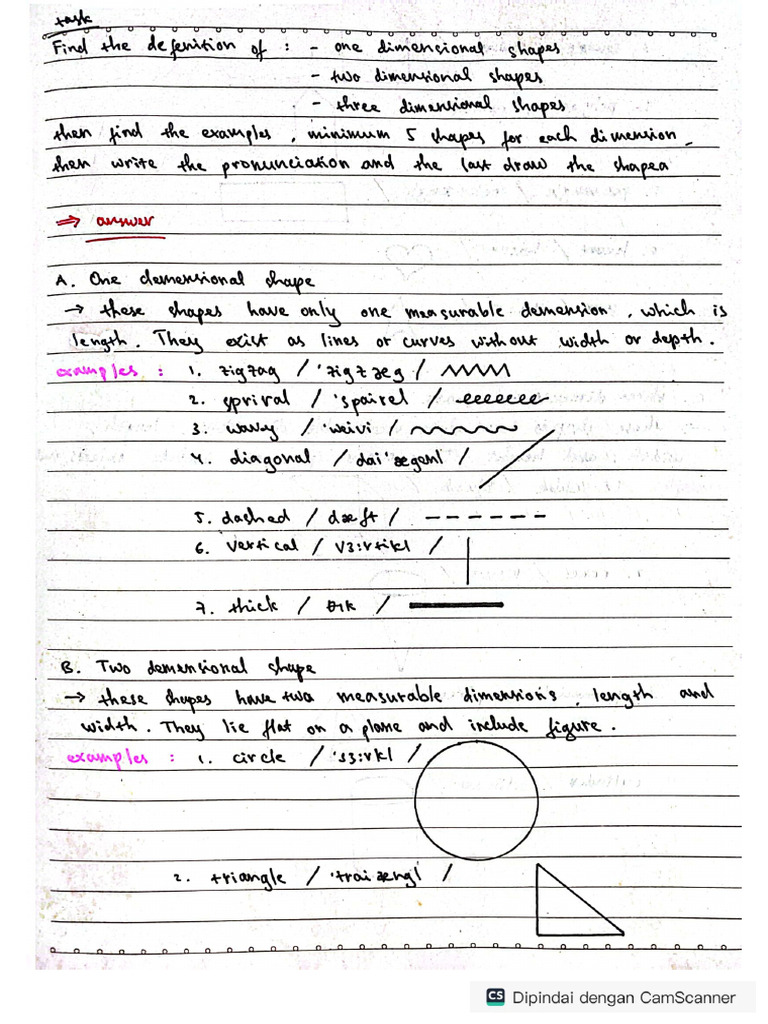 task
Find the defenition of : - one dimencional shapes
- two dimensional shapes
- three dimensional shapes
then find the examples, minimum 5 shapes for each dimension.
then write the pronunciation and the last draw the shapea
⇒ answer
A. One demensional shape
→ these shapes have only one measurable demension, which is
length. They exist as lines or curves without width or depth.
examples : 1. zigzag / 'zigzæg /
2. sprival / 'spairel /
3. wavy / 'weivi /
4. diagonal / dai'ægenl /
5. dashed / dæft /
6. vertical / v3:rtikl /
7. thick / θık /
B. Two demensional shape
→ these shapes have two measurable dimensions, length and
width. They lie flat on a plane and include figure.
examples : 1. circle / 's3:rkl /
2. triangle / 'traiængl /
CS Dipindai dengan CamScanner